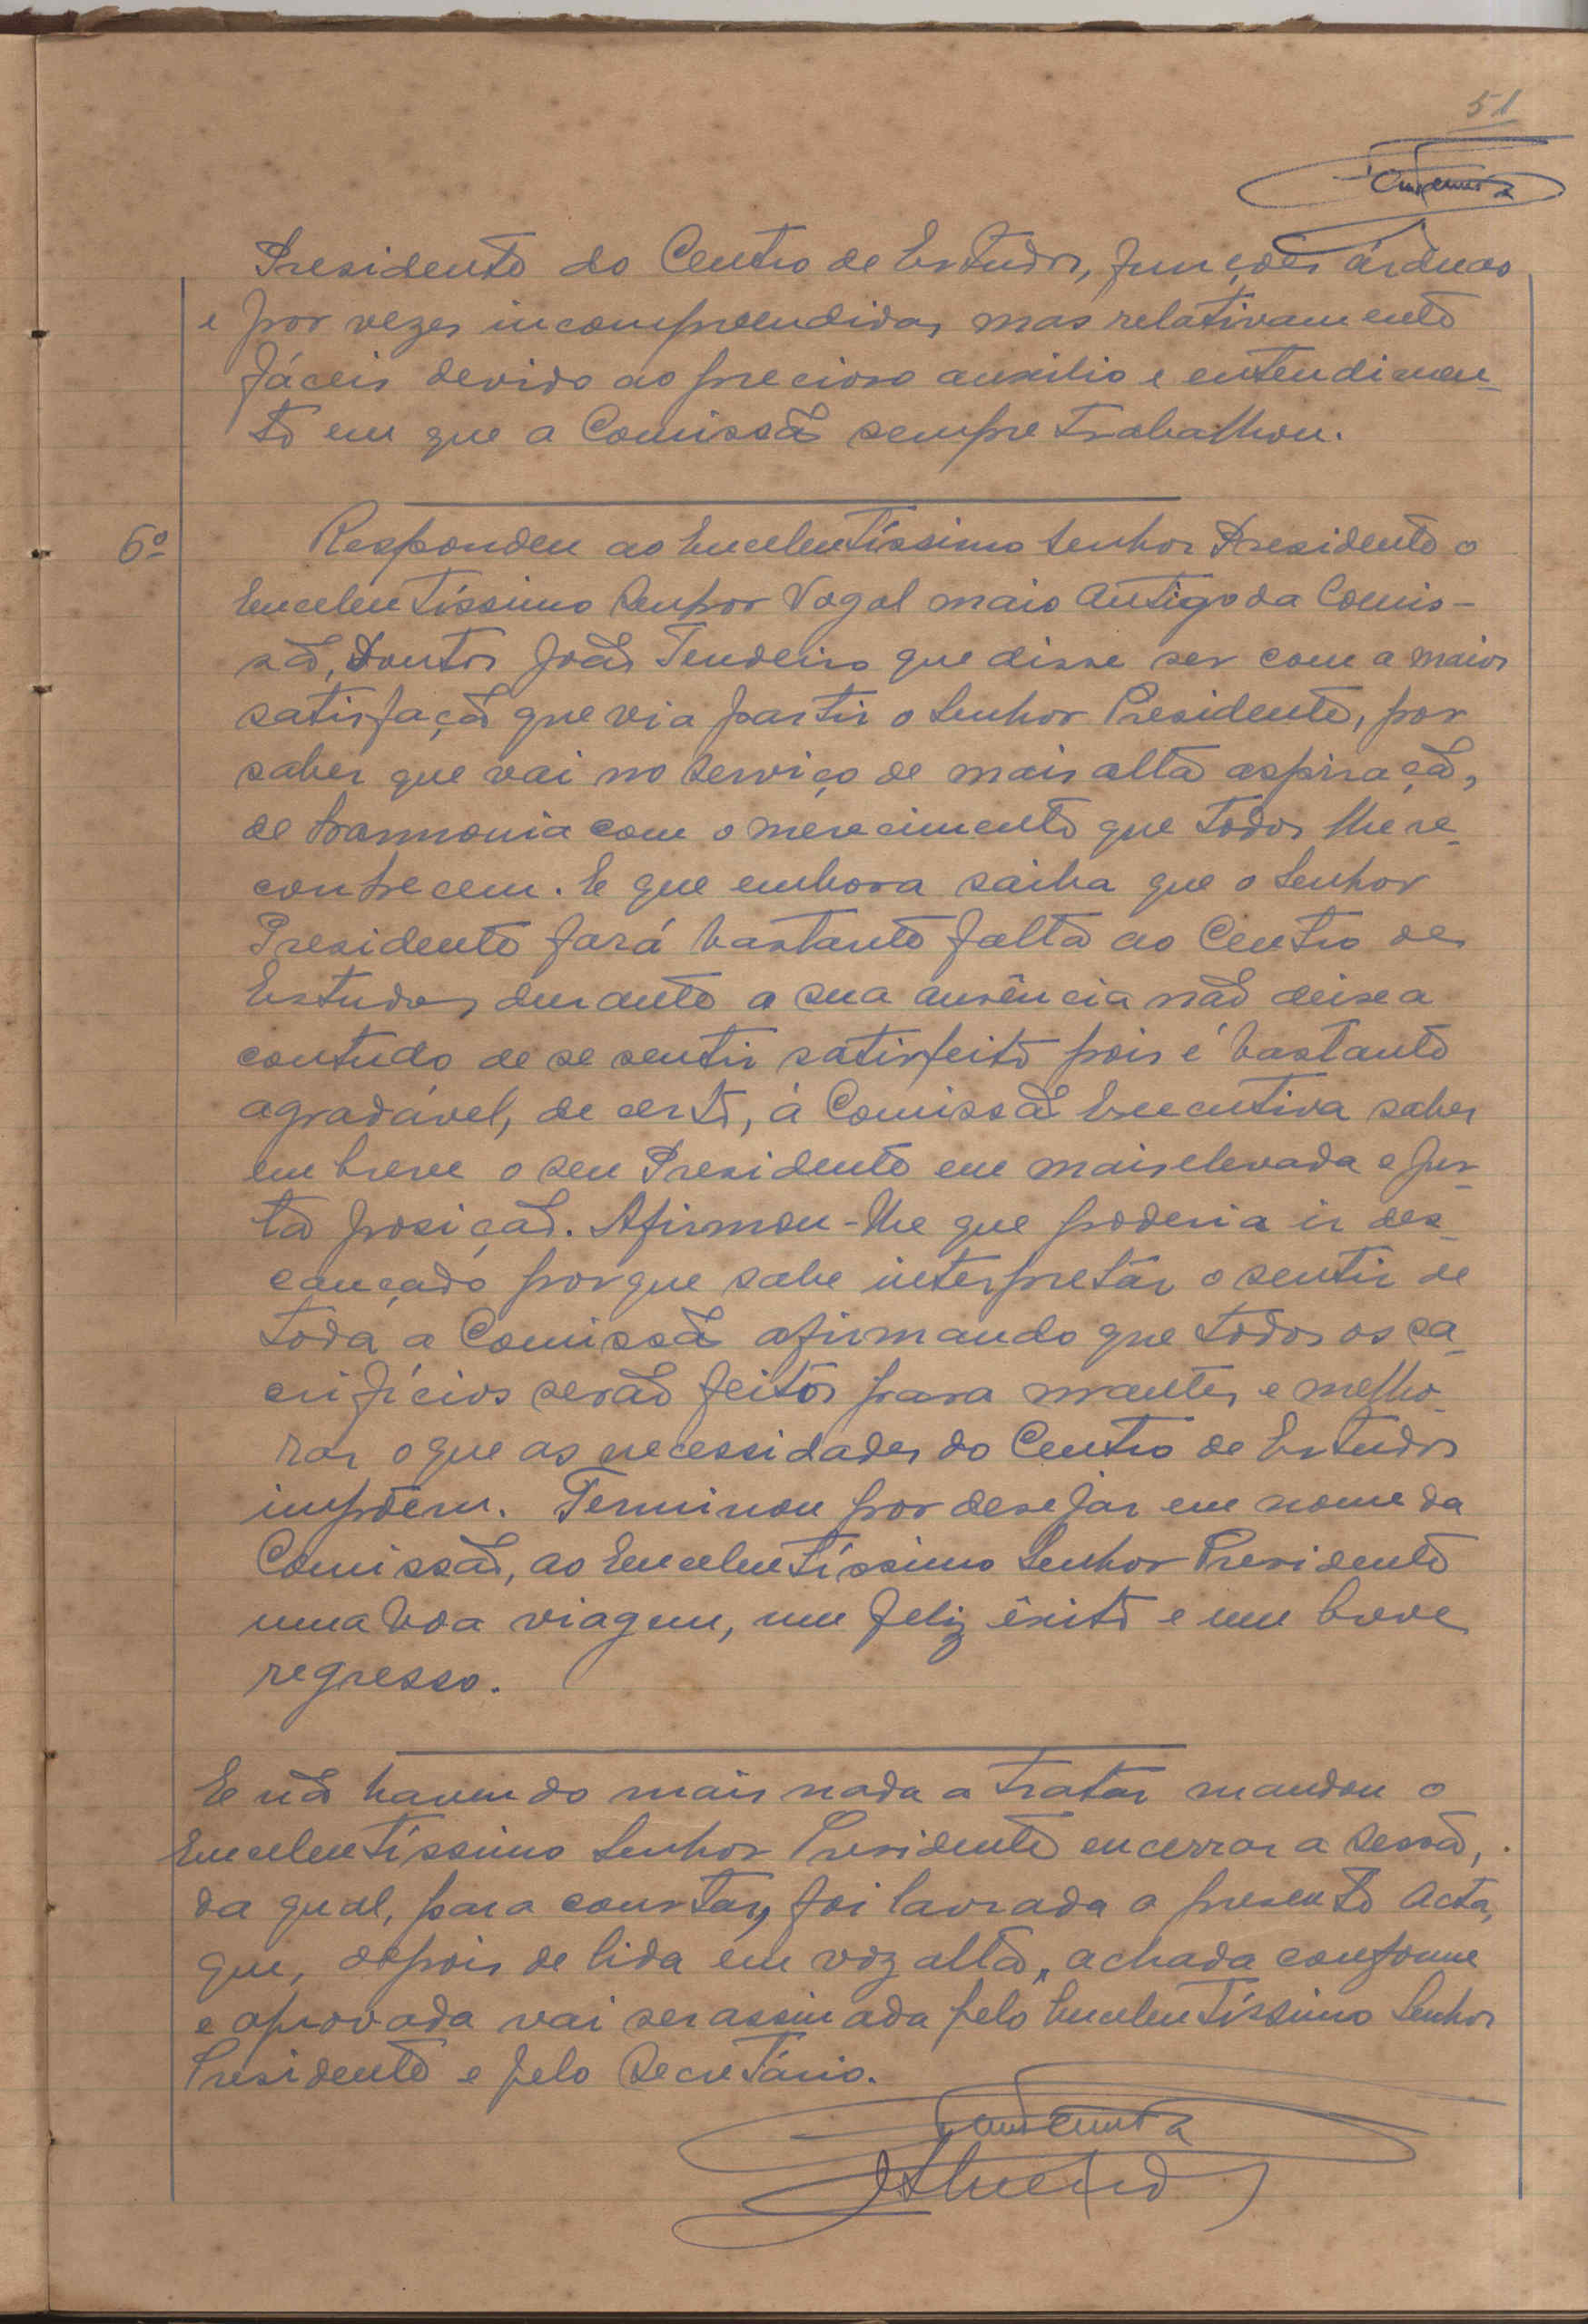 51
Presidente do Centro de Estudos, funções árduas
e por vezes incompreendidas, mas relativamente
fáceis devido ao precioso auxílio e entendimen-
to em que a Comissão sempre trabalhou.
6º Respondeu ao Excelentíssimo Senhor Presidente o
Excelentíssimo Senhor Vogal mais antigo da Comis-
são, Doutor João Tendeiro que disse ser com a maior
satisfação que via partir o Senhor Presidente, por
saber que vai no serviço de mais alta aspiração,
de harmonia com o merecimento que todos lhe re-
conhecem. E que embora saiba que o Senhor
Presidente fará bastante falta ao Centro de
Estudos durante a sua ausência não deixa
contudo de se sentir satisfeito pois é bastante
agradável, de certo, à Comissão Executiva saber
em breve o seu Presidente em mais elevada e jus-
ta posição. Afirmou-lhe que poderia ir des-
cançado porque sabe interpretar o sentir de
toda a Comissão afirmando que todos os sa-
crifícios serão feitos para manter e melho-
rar o que as necessidades do Centro de Estudos
impõem. Terminou por desejar em nome da
Comissão, ao Excelentíssimo Senhor Presidente
uma boa viagem, um feliz êxito e um breve
regresso.
E não havendo mais nada a tratar mandou o
Excelentíssimo Senhor Presidente encerrar a sessão,
da qual, para constar, foi lavrada a presente acta,
que, depois de lida em voz alta, achada conforme
e aprovada vai ser assinada pelo Excelentíssimo Senhor
Presidente e pelo Secretário.